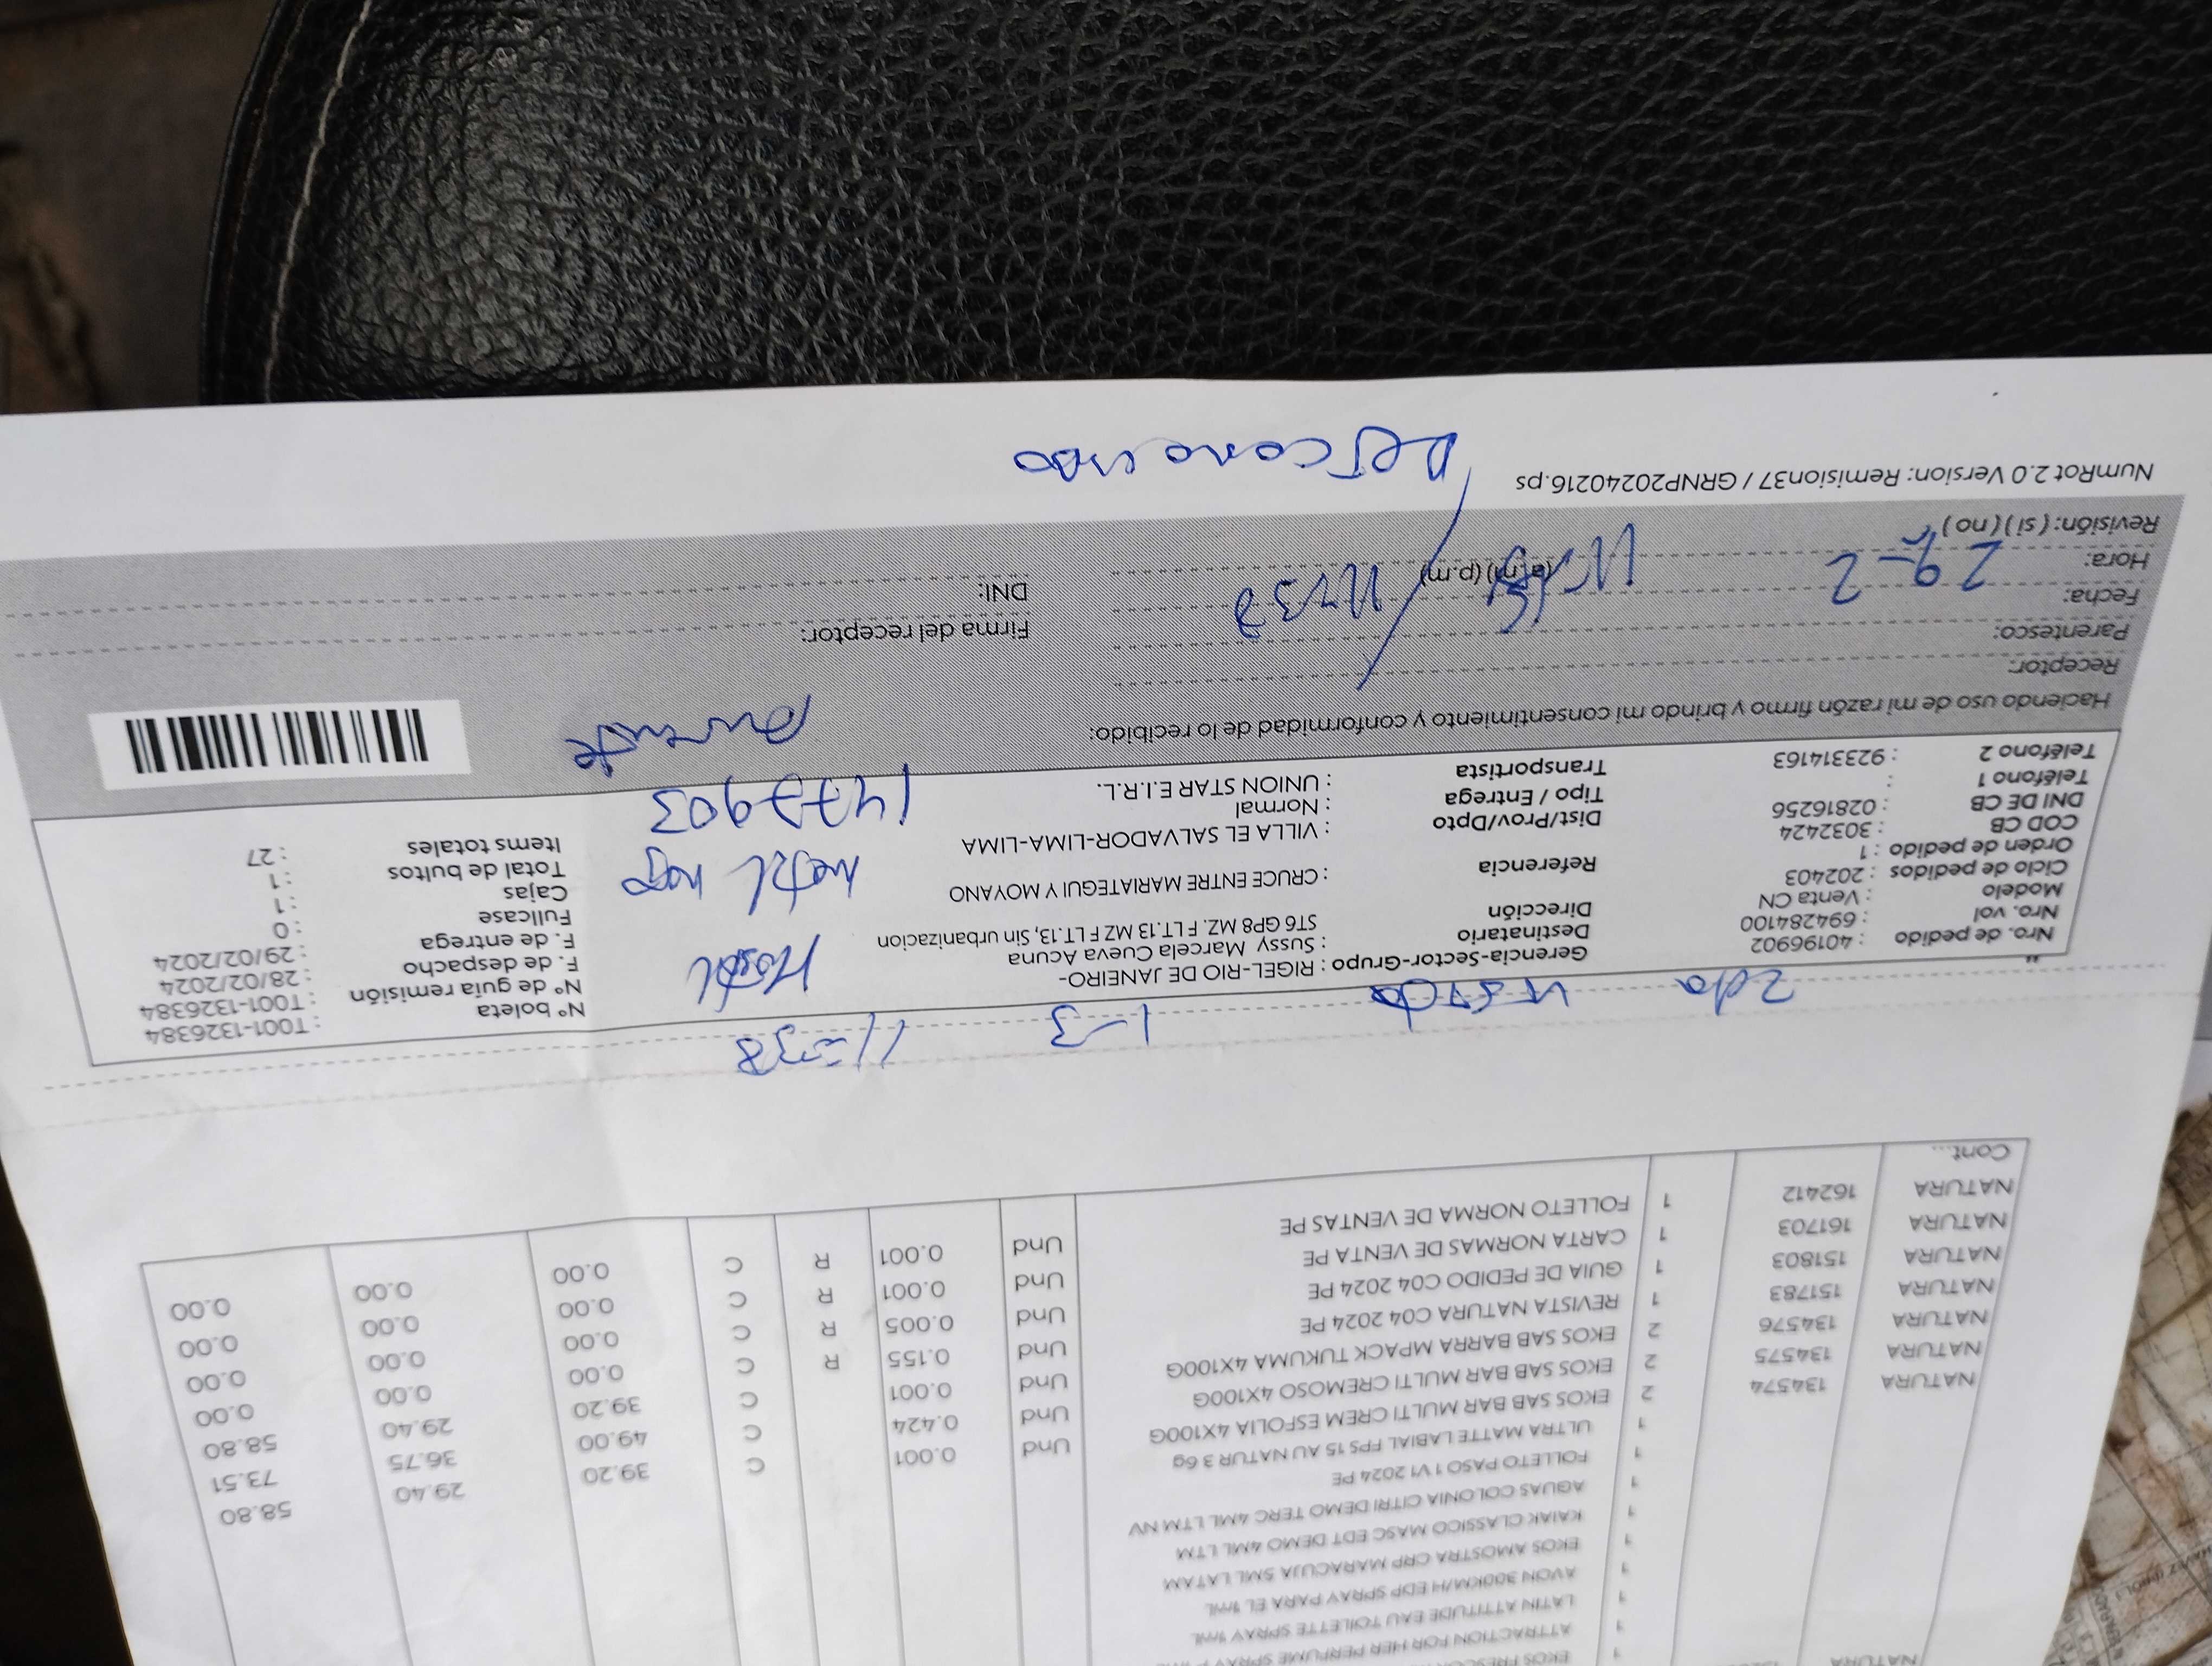 EKOS FRESCOR
ATTRACTION FOR HER PERFUME SPRAY
1 LATIN ATTITUDE EAU TOILETTE SPRAY 1mL
1 AVON 300KM/H EDP SPRAY PARA EL 1mL
1 EKOS AMOSTRA CRP MARACUJA 5ML LATAM
1 KAIAK CLASSICO MASC EDT DEMO 4ML LTM
1 AGUAS COLONIA CITRI DEMO TERC 4ML LTM NV
1 FOLLETO PASO 1 V1 2024 PE
1 ULTRA MATTE LABIAL FPS 15 AU NATUR 3 6g
NATURA 134574 2 EKOS SAB BAR MULTI CREM ESFOLIA 4X100G Und 0.001 C 39.20 29.40 58.80
NATURA 134575 2 EKOS SAB BAR MULTI CREMOSO 4X100G Und 0.424 C 49.00 36.75 73.51
NATURA 134576 2 EKOS SAB BARRA MPACK TUKUMA 4X100G Und 0.001 C 39.20 29.40 58.80
NATURA 151783 1 REVISTA NATURA C04 2024 PE Und 0.155 R C 0.00 0.00 0.00
NATURA 151803 1 GUIA DE PEDIDO C04 2024 PE Und 0.005 R C 0.00 0.00 0.00
NATURA 161703 1 CARTA NORMAS DE VENTA PE Und 0.001 R C 0.00 0.00 0.00
NATURA 162412 1 FOLLETO NORMA DE VENTAS PE Und 0.001 R C 0.00 0.00 0.00
Cont...
2da 1-3 11:38
Nro. de pedido : 40196902
Nro. vol : 694284100
Modelo : Venta CN
Ciclo de pedidos : 202403
Orden de pedido : 1
COD CB : 3032424
DNI DE CB : 02816256
Teléfono 1 :
Teléfono 2 : 923314163
Gerencia-Sector-Grupo : RIGEL-RIO DE JANEIRO-
Destinatario : Sussy Marcela Cueva Acuna
Dirección ST6 GP8 MZ. F LT.13 MZ F LT.13, Sin urbanizacion
Referencia : CRUCE ENTRE MARIATEGUI Y MOYANO
Dist/Prov/Dpto : VILLA EL SALVADOR-LIMA-LIMA
Tipo / Entrega : Normal
Transportista : UNION STAR E.I.R.L.
N° boleta : T001-1326384
N° de guía remisión : T001-1326384
F. de despacho : 28/02/2024
F. de entrega : 29/02/2024
Fullcase : 0
Cajas : 1
Total de bultos : 1
Items totales : 27
Haciendo uso de mi razón firmo y brindo mi consentimiento y conformidad de lo recibido:
Receptor:
Parentesco:
Fecha: 29-2
Hora: (a.m) (p.m)
Revisión: ( si ) ( no )
Firma del receptor:
DNI:
NumRot 2.0 Version: Remision37 / GRNP20240216.ps
Desconocido